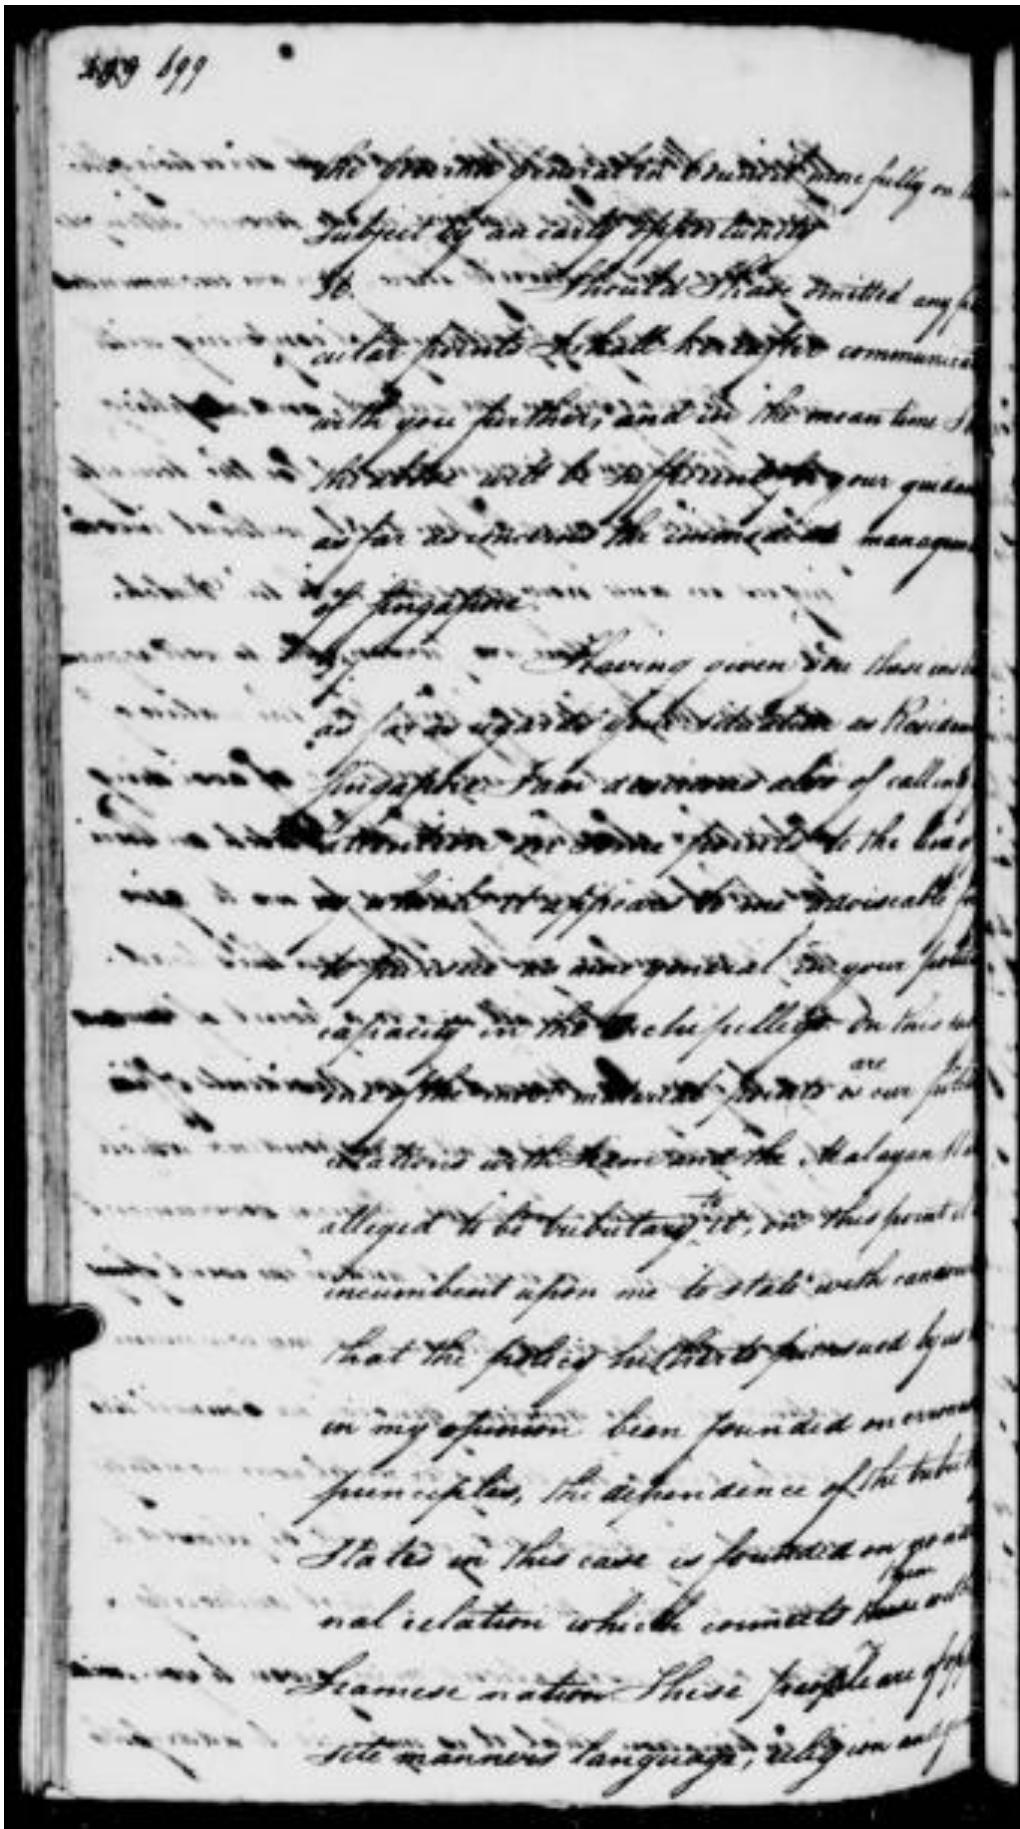 699
the Governor General in Council more fully on
subject by an early opportunity
36. Should I have omitted any
cular points I shall hereafter communicat
with you further, and in the mean time I
the above will be sufficient for your guidan
as far as concerns the immediate managem
of Singapore
Having given you these
as far as regards your situation as Residen
Singapore I am desirous also of calling
attention on some points to the line
which it appears to me adviseable
to pursue in general in your polit
capacity in the Archipelligo. On this
one of the most material points are our
relations with Siam and the Malayan Sta
alleged to be tributary to it, on this point it
incumbent upon me to state with candour
that the policy hitherto persued by us
in my opinion been founded on errone
principles, the dependence of the tribut
States in this case is founded on no
nal relation which connects them with
Siamese nation These people are of oppo
site manners language, religion and